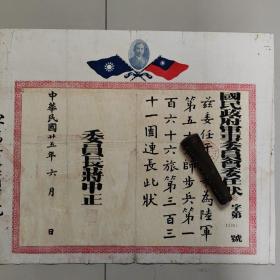 國民政府軍事委員會委任狀
字第 號
茲委任 為陸軍
第五十 師步兵第一
百六十六旅第三百三
十一團連長此狀
委員長蔣中正
中華民國廿五年六月 日